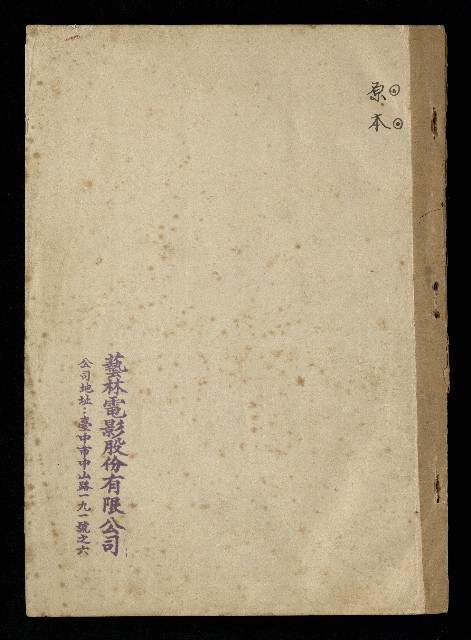 原本
藝林電影股份有限公司
公司地址：臺中市中山路一九一號之六